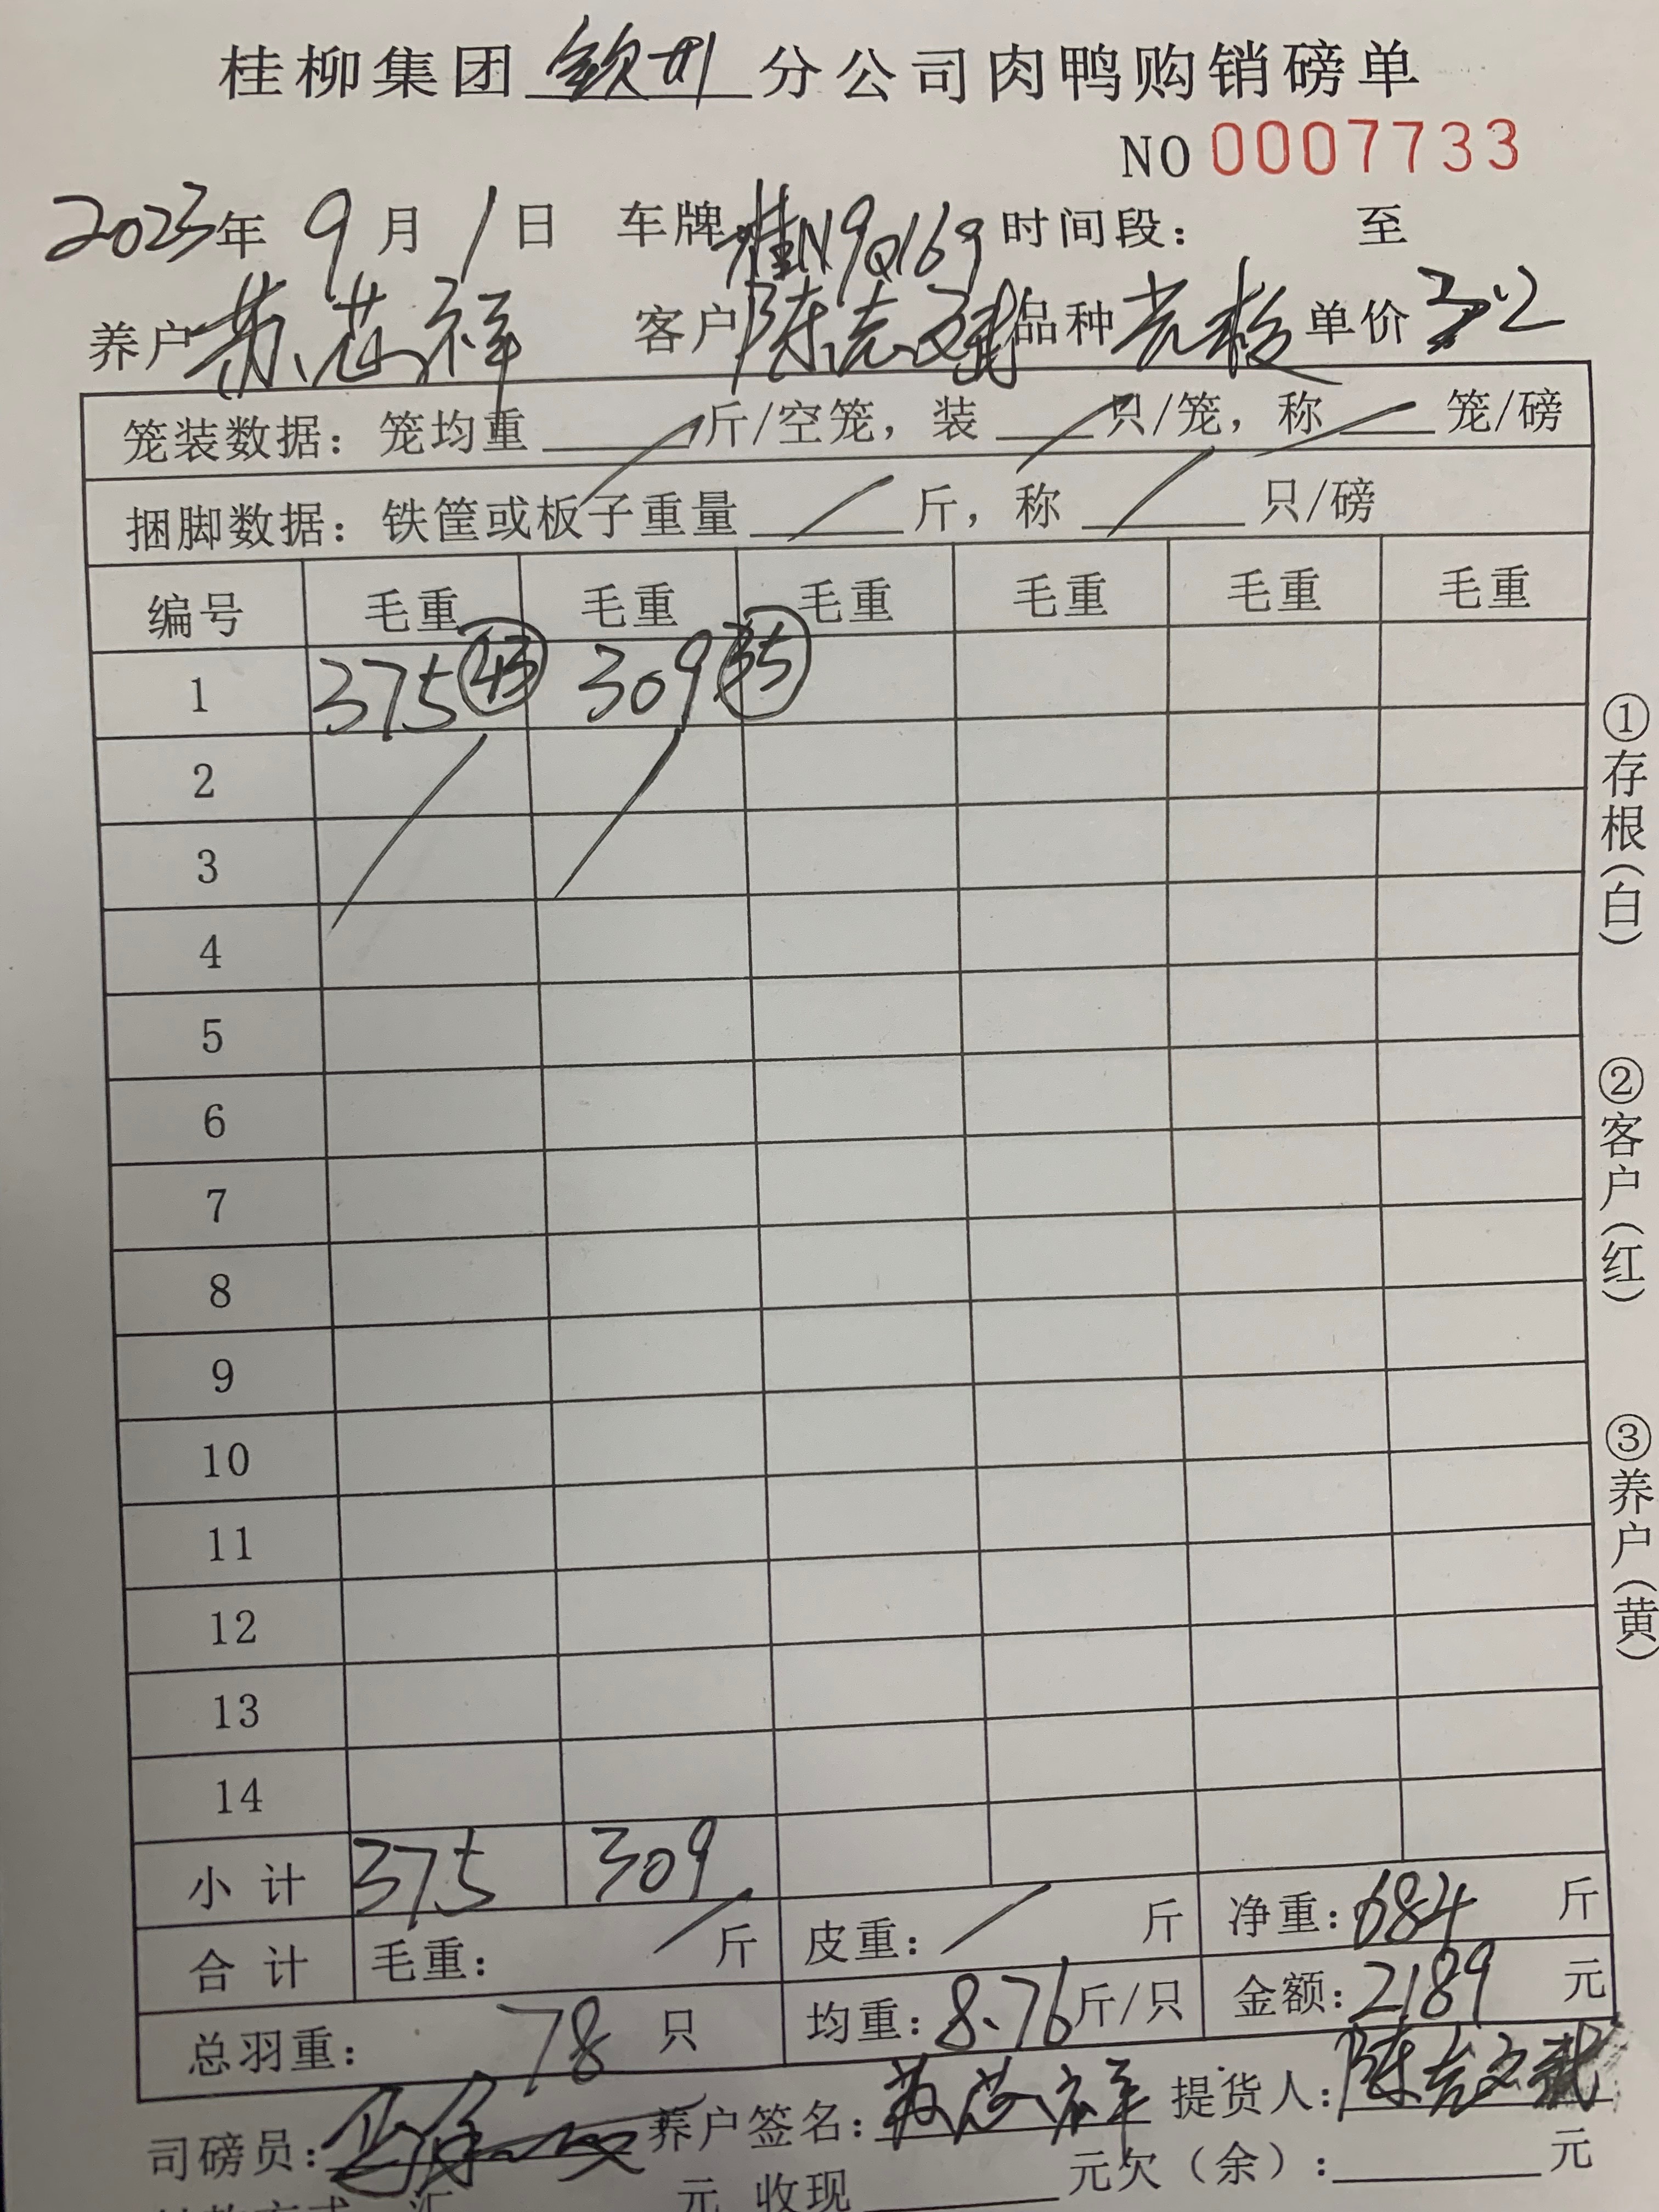 桂柳集团 钦州 分公司肉鸭购销磅单
NO 0007733
2023年 9月 1日 车牌 桂N9Q169 时间段： 至
养户 苏芯祥 客户 陈克文 品种 单价 3.2
笼装数据：笼均重 / 斤/空笼，装 / 只/笼，称 / 笼/磅
捆脚数据：铁筐或板子重量 / 斤，称 / 只/磅
编号 毛重 毛重 毛重 毛重 毛重 毛重
1 375 43 309 35
2
3
4
5
6
7
8
9
10
11
12
13
14
小计 375 309
合计 毛重： / 斤 皮重： / 斤 净重：684 斤
总羽重： 78 只 均重：8.76斤/只 金额：2189 元
司磅员： 养户签名：苏芯祥 提货人：陈克文
元 收现 元欠（余）： 元
①存根（白）
②客户（红）
③养户（黄）